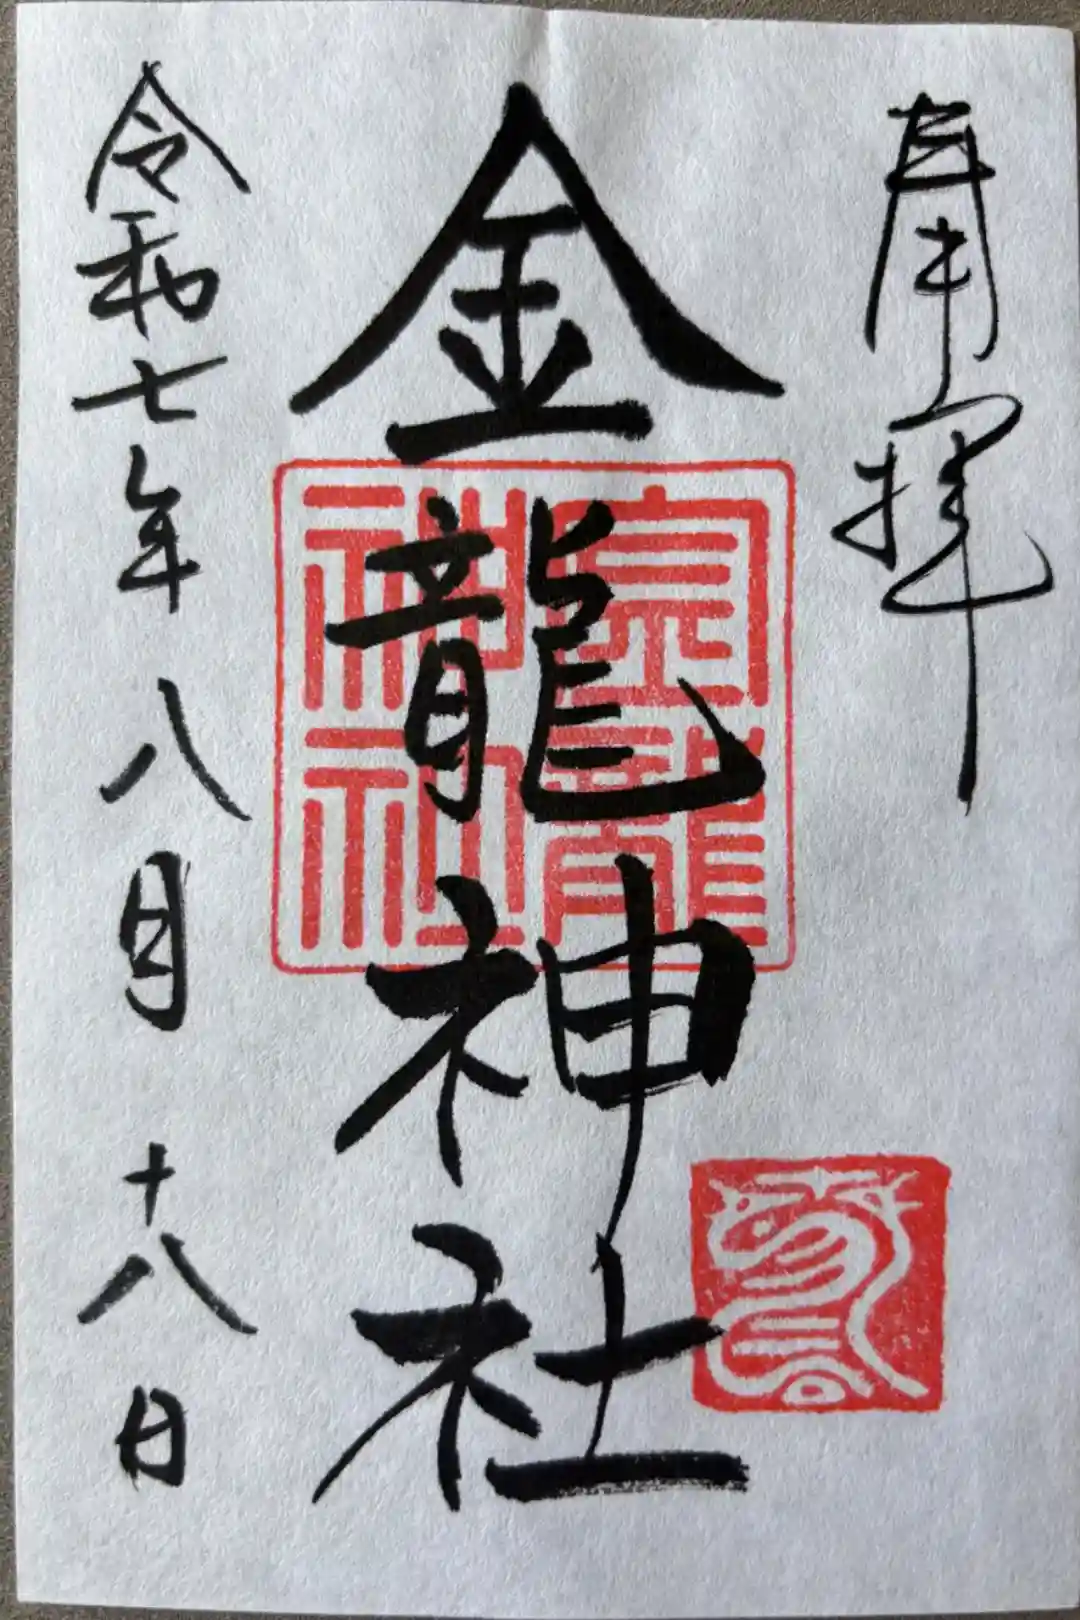 奉拝
金龍神社
金龍
神社
令和七年八月十八日